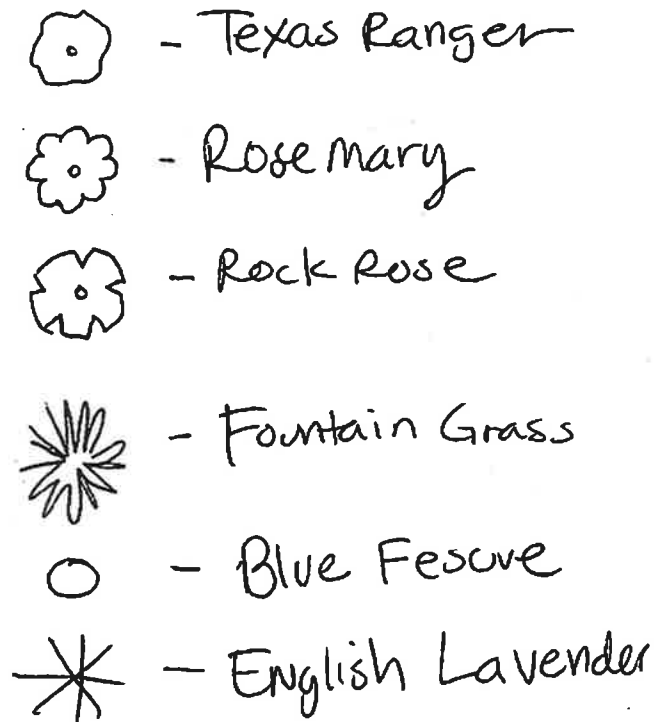 - Texas Ranger
- Rosemary
- Rock Rose
- Fountain Grass
- Blue Fescue
- English Lavender